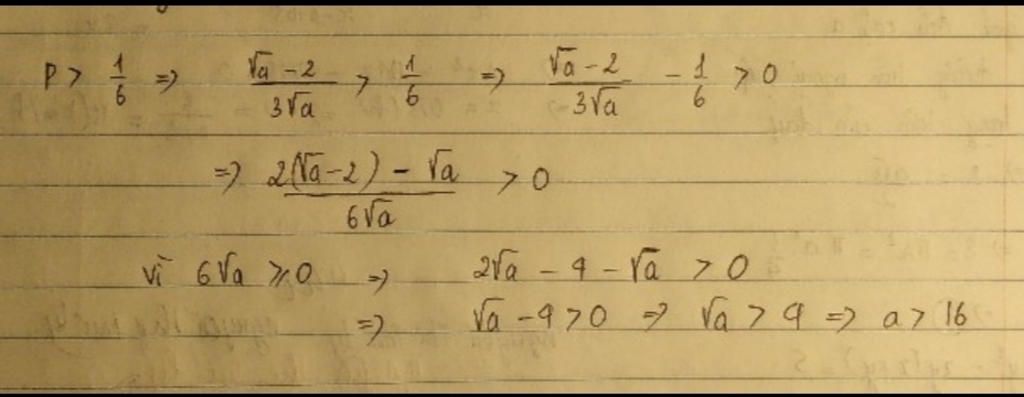 P > 1/6 => (√a - 2)/(3√a) > 1/6 => (√a - 2)/(3√a) - 1/6 > 0
=> (2(√a - 2) - √a)/(6√a) > 0
vì 6√a ≥ 0 => 2√a - 4 - √a > 0
=> √a - 4 > 0 => √a > 4 => a > 16